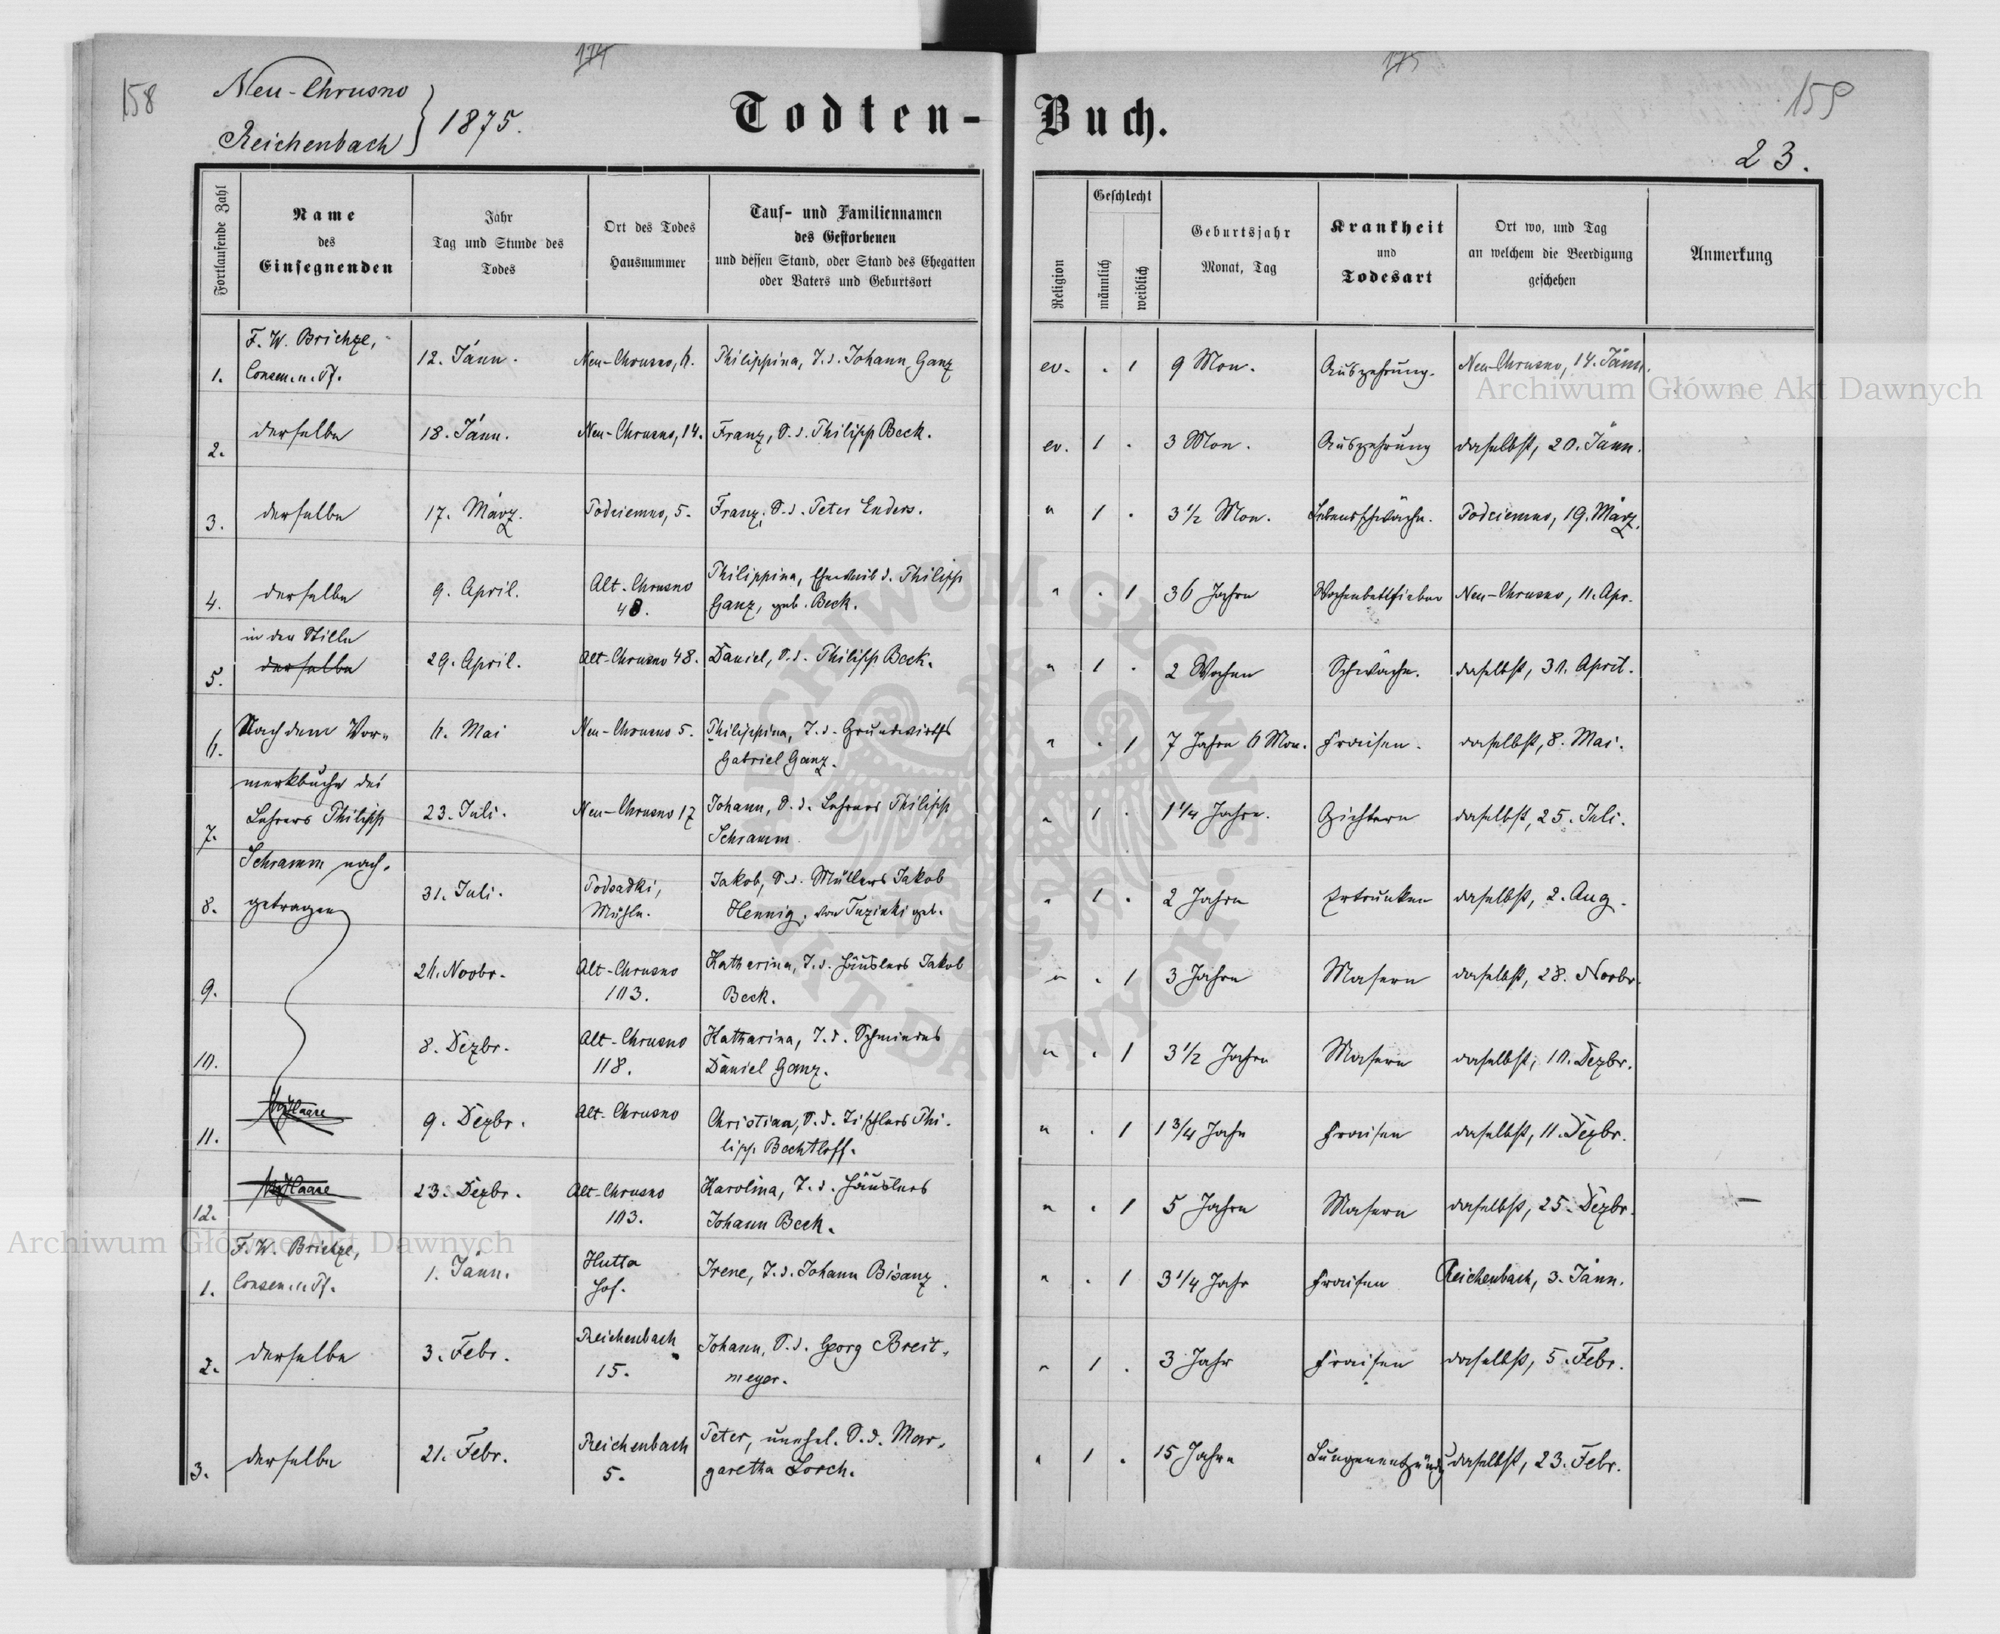 158
174
175
159
Neu-Chrusno
Reichenbach } 1875.
Todten-Buch.
23.
Fortlaufende Zahl
Name
des
Einsegnenden
Jahr
Tag und Stunde des
Todes
Ort des Todes
Hausnummer
Tauf- und Familiennamen
des Gestorbenen
und dessen Stand, oder Stand des Ehegatten
oder Vaters und Geburtsort
Religion
Geschlecht
männlich
weiblich
Geburtsjahr
Monat, Tag
Krankheit
und
Todesart
Ort wo, und Tag
an welchem die Beerdigung
geschehen
Anmerkung
F. W. Brichze,
1. Consen. u. Pf. 12. Jänn. Neu-Chrusno, 6. Philippina, T. d. Johann Ganz ev. . 1 9 Mon. Auszehrung. Neu-Chrusno, 14. Jänn.
2. derselbe 18. Jänn. Neu-Chrusno, 14. Franz, S. d. Philipp Beck. ev. 1 . 3 Mon. Auszehrung daselbst, 20. Jänn.
3. derselbe 17. März. Podciemno, 5. Franz, S. d. Peter Enders. " 1 . 3 1/2 Mon. Lebensschwäche. Podciemno, 19. März.
4. derselbe 9. April. Alt-Chrusno 48. Philippina, Eheweib d. Philipp
Ganz, geb. Beck. " . 1 36 Jahre Wochenbettfieber Neu-Chrusno, 11. Apr.
in der Stille
5. derselbe 29. April. Alt-Chrusno 48. Daniel, S. d. Philipp Beck. " 1 . 2 Wochen Schwäche. daselbst, 30. April.
6. Nach dem Vor- 6. Mai Neu-Chrusno 5. Philippina, T. d. Grundwirths
Gabriel Ganz. " . 1 7 Jahre 6 Mon. Fraisen. daselbst, 8. Mai.
merkbuche des
7. Lehrers Philipp 23. Juli. Neu-Chrusno 17 Johann, S. d. Lehrers Philipp
Schramm " 1 . 1 1/4 Jahre. Gichtern daselbst, 25. Juli.
Schramm nach-
8. getragen 31. Juli. Podsadki, Mühle. Jakob, S. d. Müllers Jakob
Hennig, von geb. " 1 . 2 Jahre Ertrunken daselbst, 2. Aug.
9. 26. Novbr. Alt-Chrusno 103. Katharina, T. d. Häuslers Jakob
Beck. " . 1 3 Jahre Masern daselbst, 28. Novbr.
10. 8. Dezbr. Alt-Chrusno 118. Katharina, T. d. Schmiedes
Daniel Ganz. " . 1 3 1/2 Jahre Masern daselbst, 10. Dezbr.
11. 9. Dezbr. Alt-Chrusno Christian, S. d. Tischlers Phi-
lipp Bechtloff. " . 1 1 3/4 Jahr Fraisen daselbst, 11. Dezbr.
12. 23. Dezbr. Alt-Chrusno 103. Karolina, T. d. Häuslers
Johann Beck. " . 1 5 Jahre Masern daselbst, 25. Dezbr. —
F. W. Brichze,
1. Consen. u. Pf. 1. Jänn. Hutta Hof. Irene, T. d. Johann Bisanz. " . 1 3 1/4 Jahr Fraisen Reichenbach, 3. Jänn.
2. derselbe 3. Febr. Reichenbach 15. Johann, S. d. Georg Breit-
meyer. " 1 . 3 Jahr Fraisen daselbst, 5. Febr.
3. derselbe 21. Febr. Reichenbach 5. Peter, unehel. S. d. Mar-
garetha Lorch. " 1 . 15 Jahre Lungenentzündg daselbst, 23. Febr.
Archiwum Główne Akt Dawnych
Archiwum Główne Akt Dawnych
ARCHIWUM GŁÓWNE AKT DAWNYCH